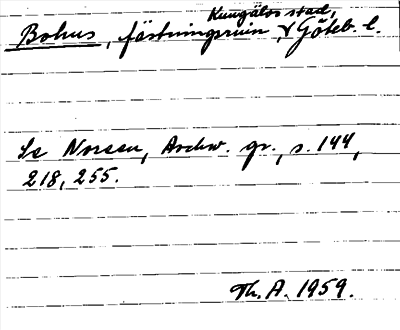 Kungälvs stad,
Bohus, fästningsruin, Göteb. l.
Se Noreen, Archiv. gr., s. 144,
218, 255.
Th. A. 1959.